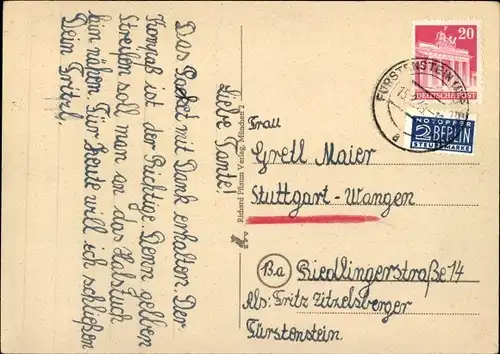 Liebe Tante!
Das Packet mit Dank erhalten. Der
Kompaß ist der Richtige. Denn gelben
Streifen soll man an das Halstuch
hin nähen. Für Heute will ich schließen
Dein Fritzl.
Richard Pflaum Verlag, München 2
20
DEUTSCHE POST
FÜRSTENSTEIN
a
NOTOPFER
2 BERLIN
STEUERMARKE
Frau
Gretl Maier
Stuttgart-Wangen
Ba
Riedlingerstraße 14
Abs: Fritz Zitzelsberger
Fürstenstein.